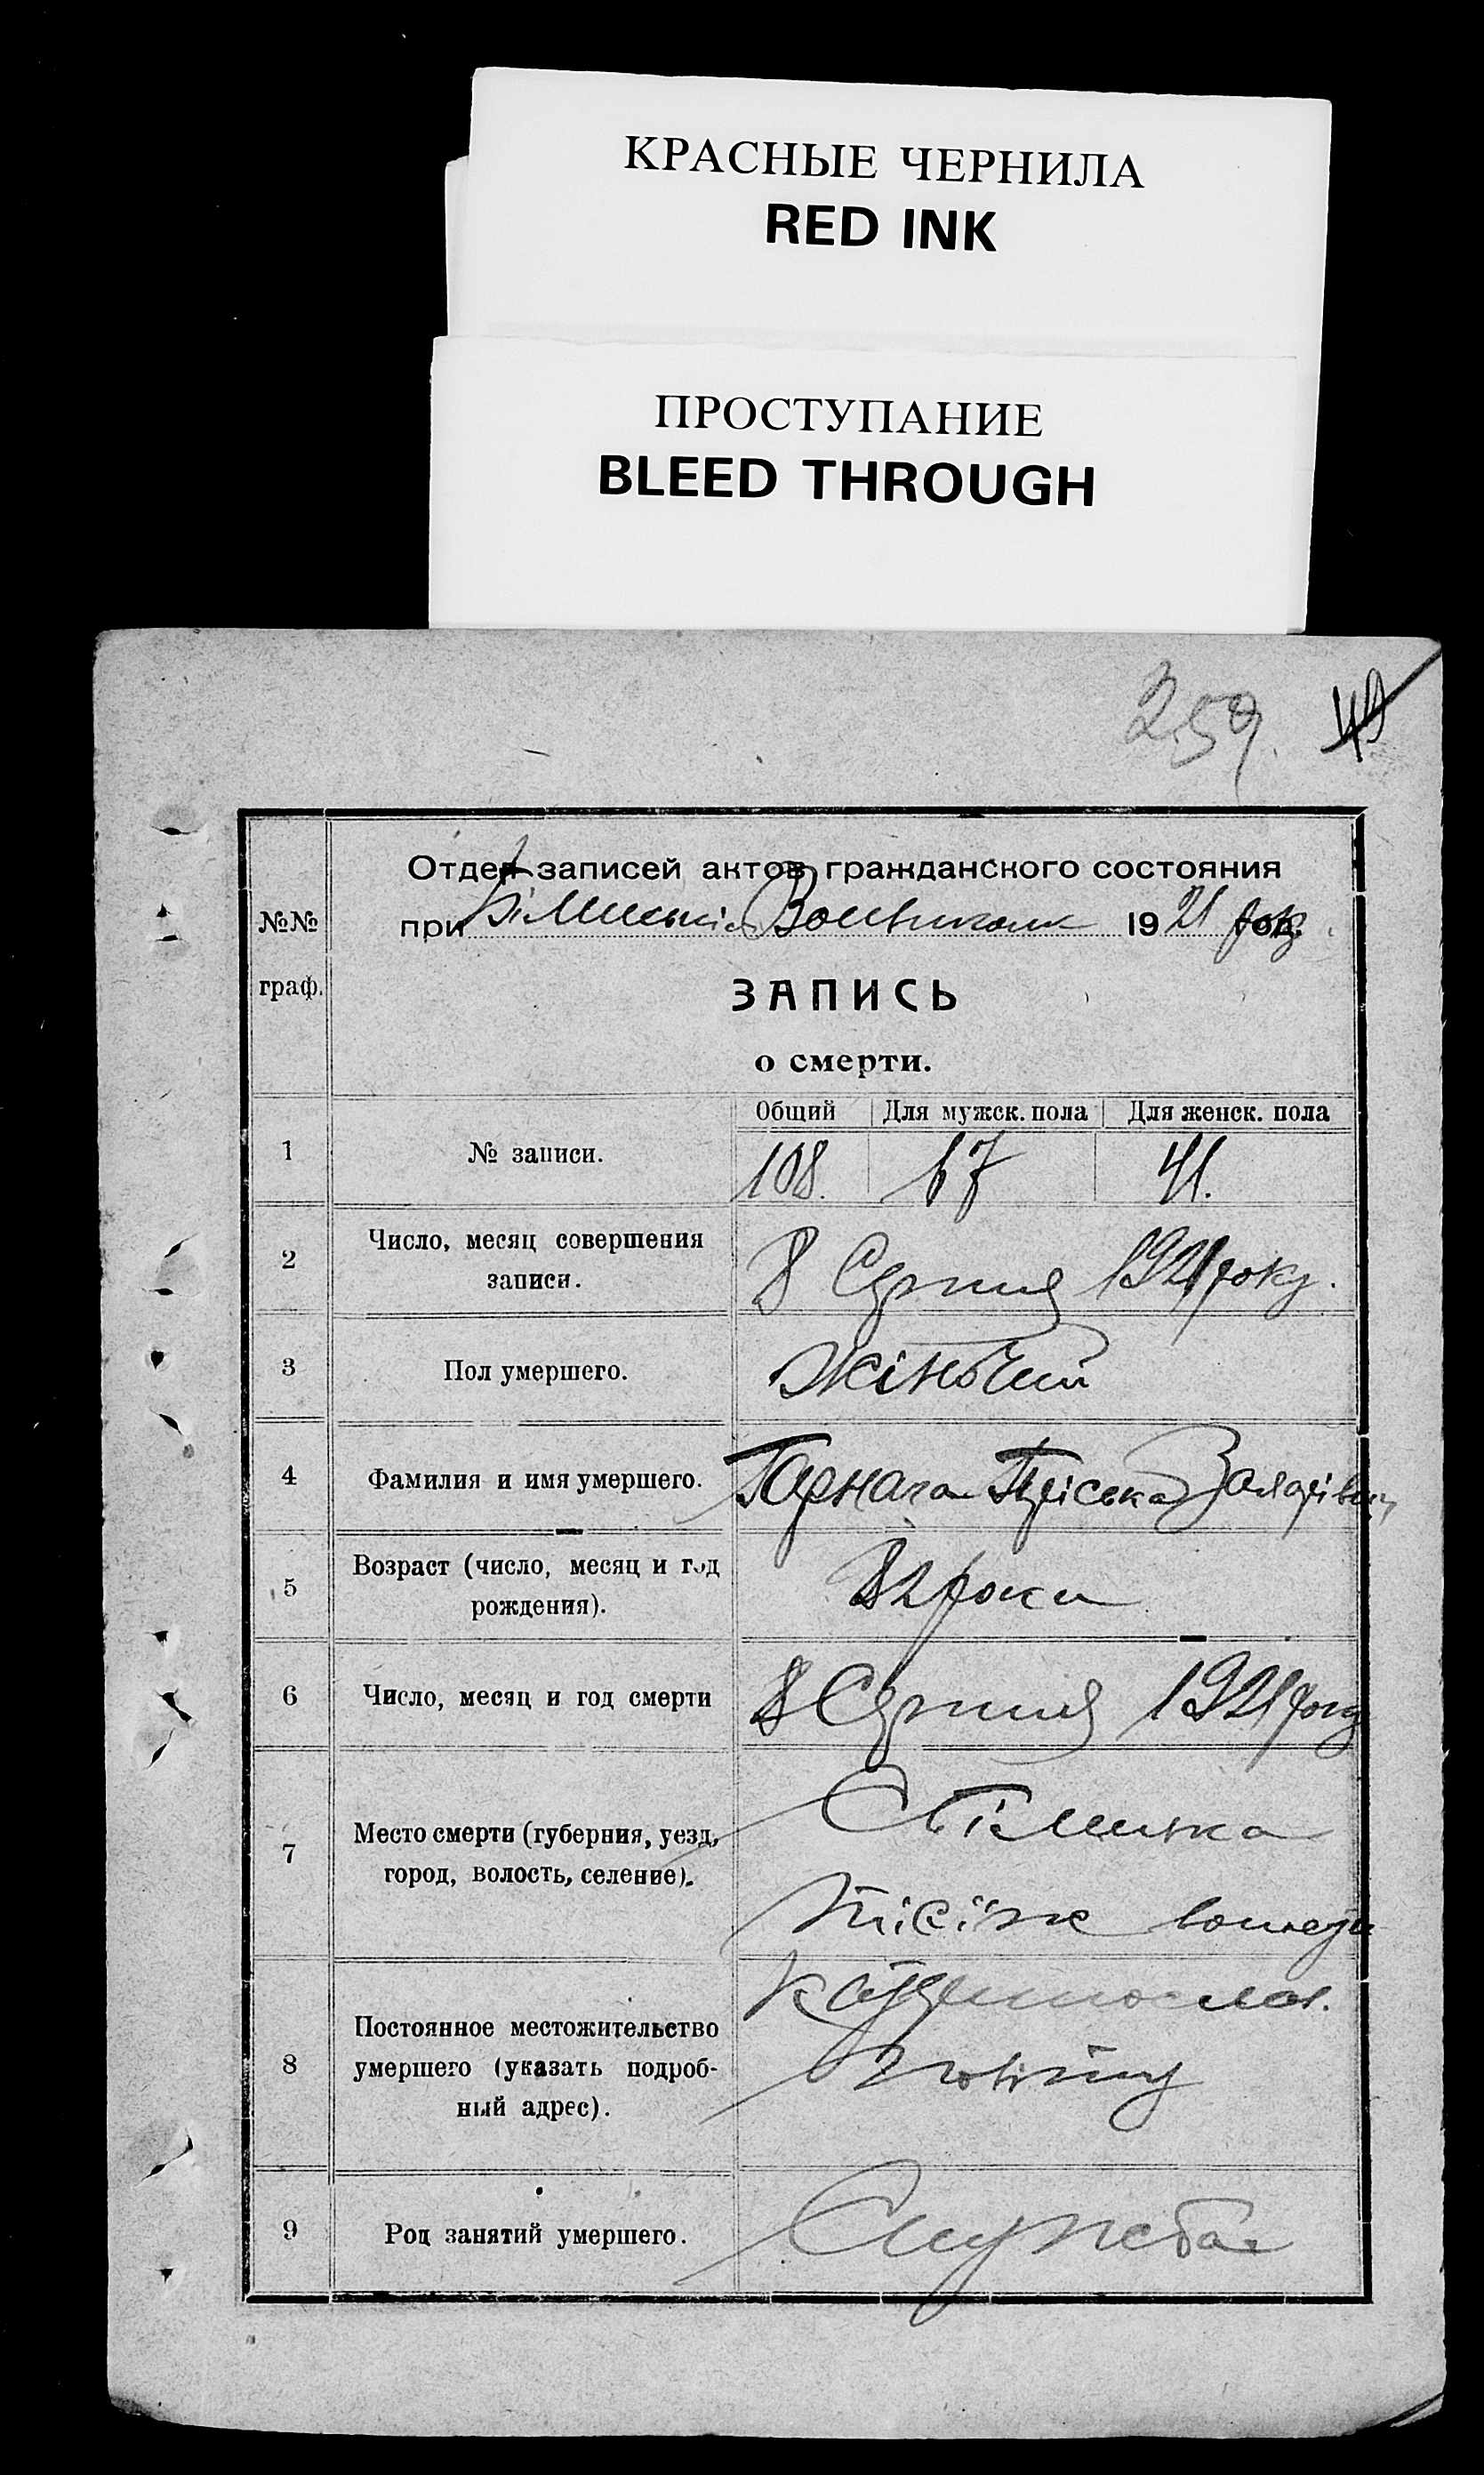 КРАСНЫЕ ЧЕРНИЛА
RED INK
ПРОСТУПАНИЕ
BLEED THROUGH
259.
49
Отдел записей актов гражданского состояния
при 1921 року
№№
граф.
ЗАПИСЬ
о смерти.
Общий Для мужск. пола Для женск. пола
1 № записи. 108. 67 41.
2 Число, месяц совершения
записи. 8 Серпня 1921 року.
3 Пол умершего. Жіночий
4 Фамилия и имя умершего.
5 Возраст (число, месяц и год
рождения). 82 роки
6 Число, месяц и год смерти 8 Серпня 1921 року
7 Место смерти (губерния, уезд,
город, волость, селение).
8 Постоянное местожительство
умершего (указать подроб-
ный адрес).
9 Род занятий умершего. Служба